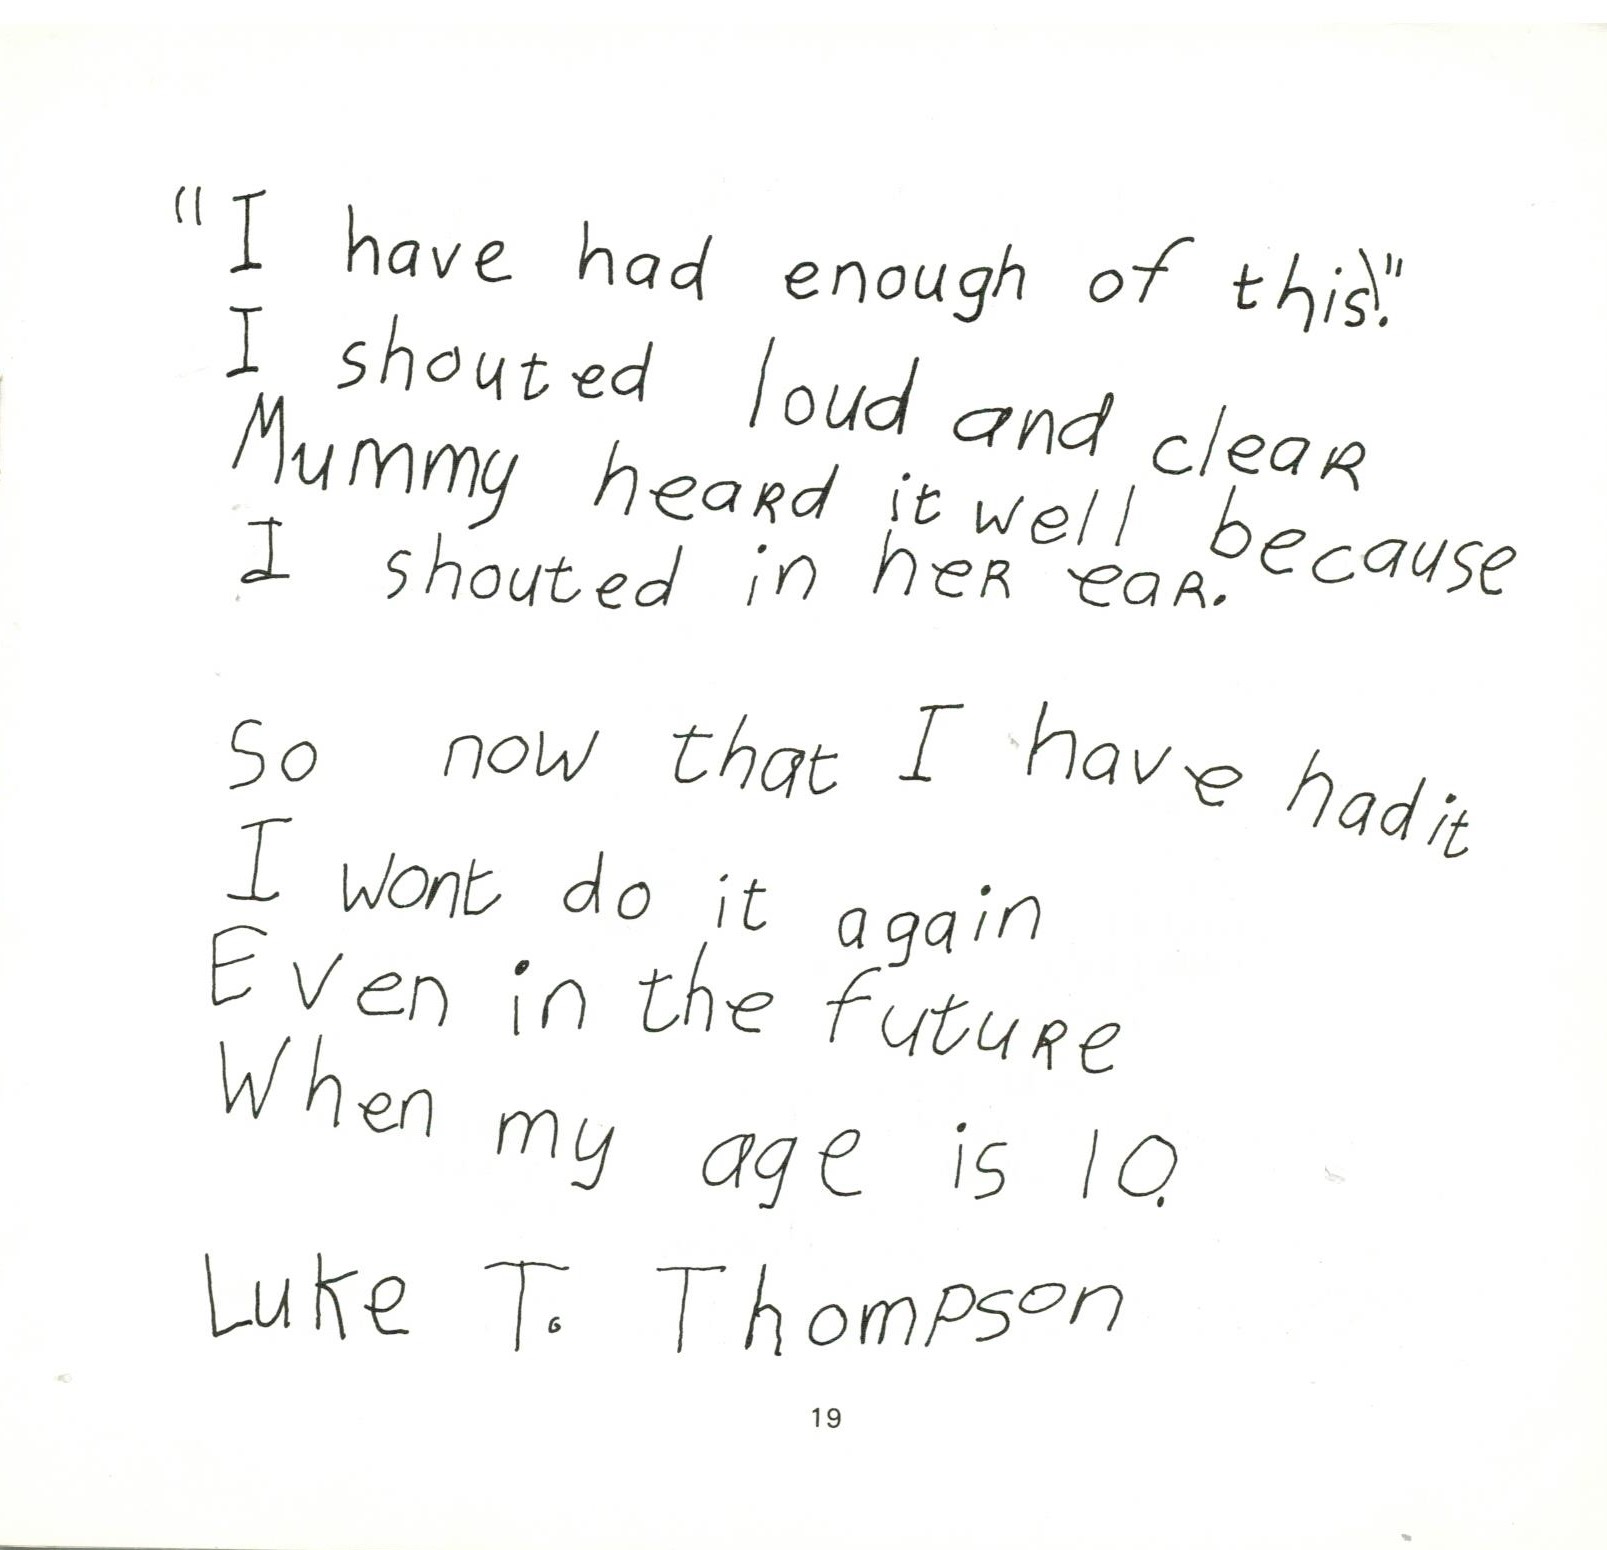 "I have had enough of this!"
I shouted loud and clear
Mummy heard it well because
I shouted in her ear.
So now that I have had it
I wont do it again
Even in the future
When my age is 10.
Luke T. Thompson
19